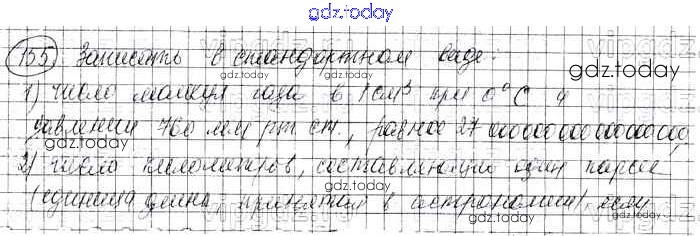 gdz.today
155 Записать в стандартном виде:
gdz.today
1) число молекул газа в 1 см³ при 0°С и
gdz.today
давлении 760 мм рт. ст., равное 27
2) число километров, составляющих один парсек
gdz.today
(единица длины, принятая в астрономии)
gdz.today